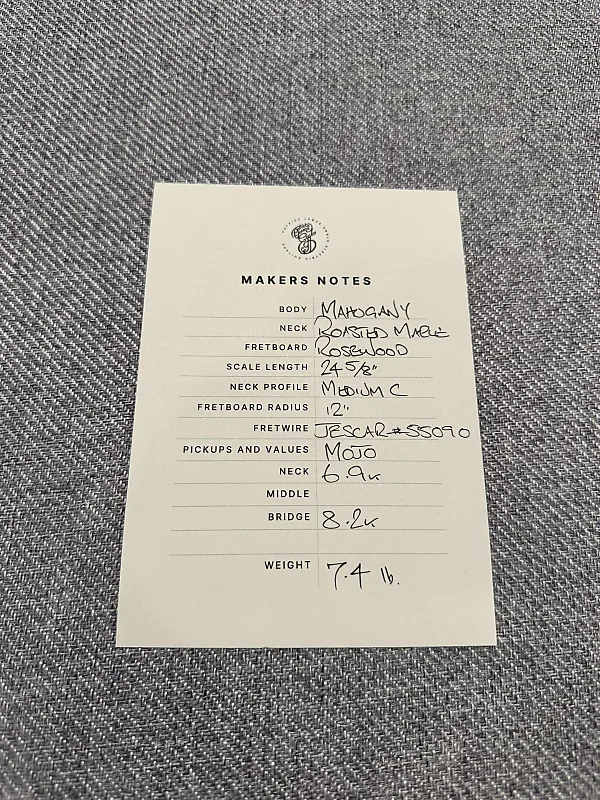 MAKERS NOTES
BODY MAHOGANY
NECK ROASTED MAPLE
FRETBOARD ROSEWOOD
SCALE LENGTH 24 5/8"
NECK PROFILE MEDIUM C
FRETBOARD RADIUS 12"
FRETWIRE JESCAR #55090
PICKUPS AND VALUES MOJO
NECK 6.9K
MIDDLE
BRIDGE 8.2K
WEIGHT 7.4 lb.